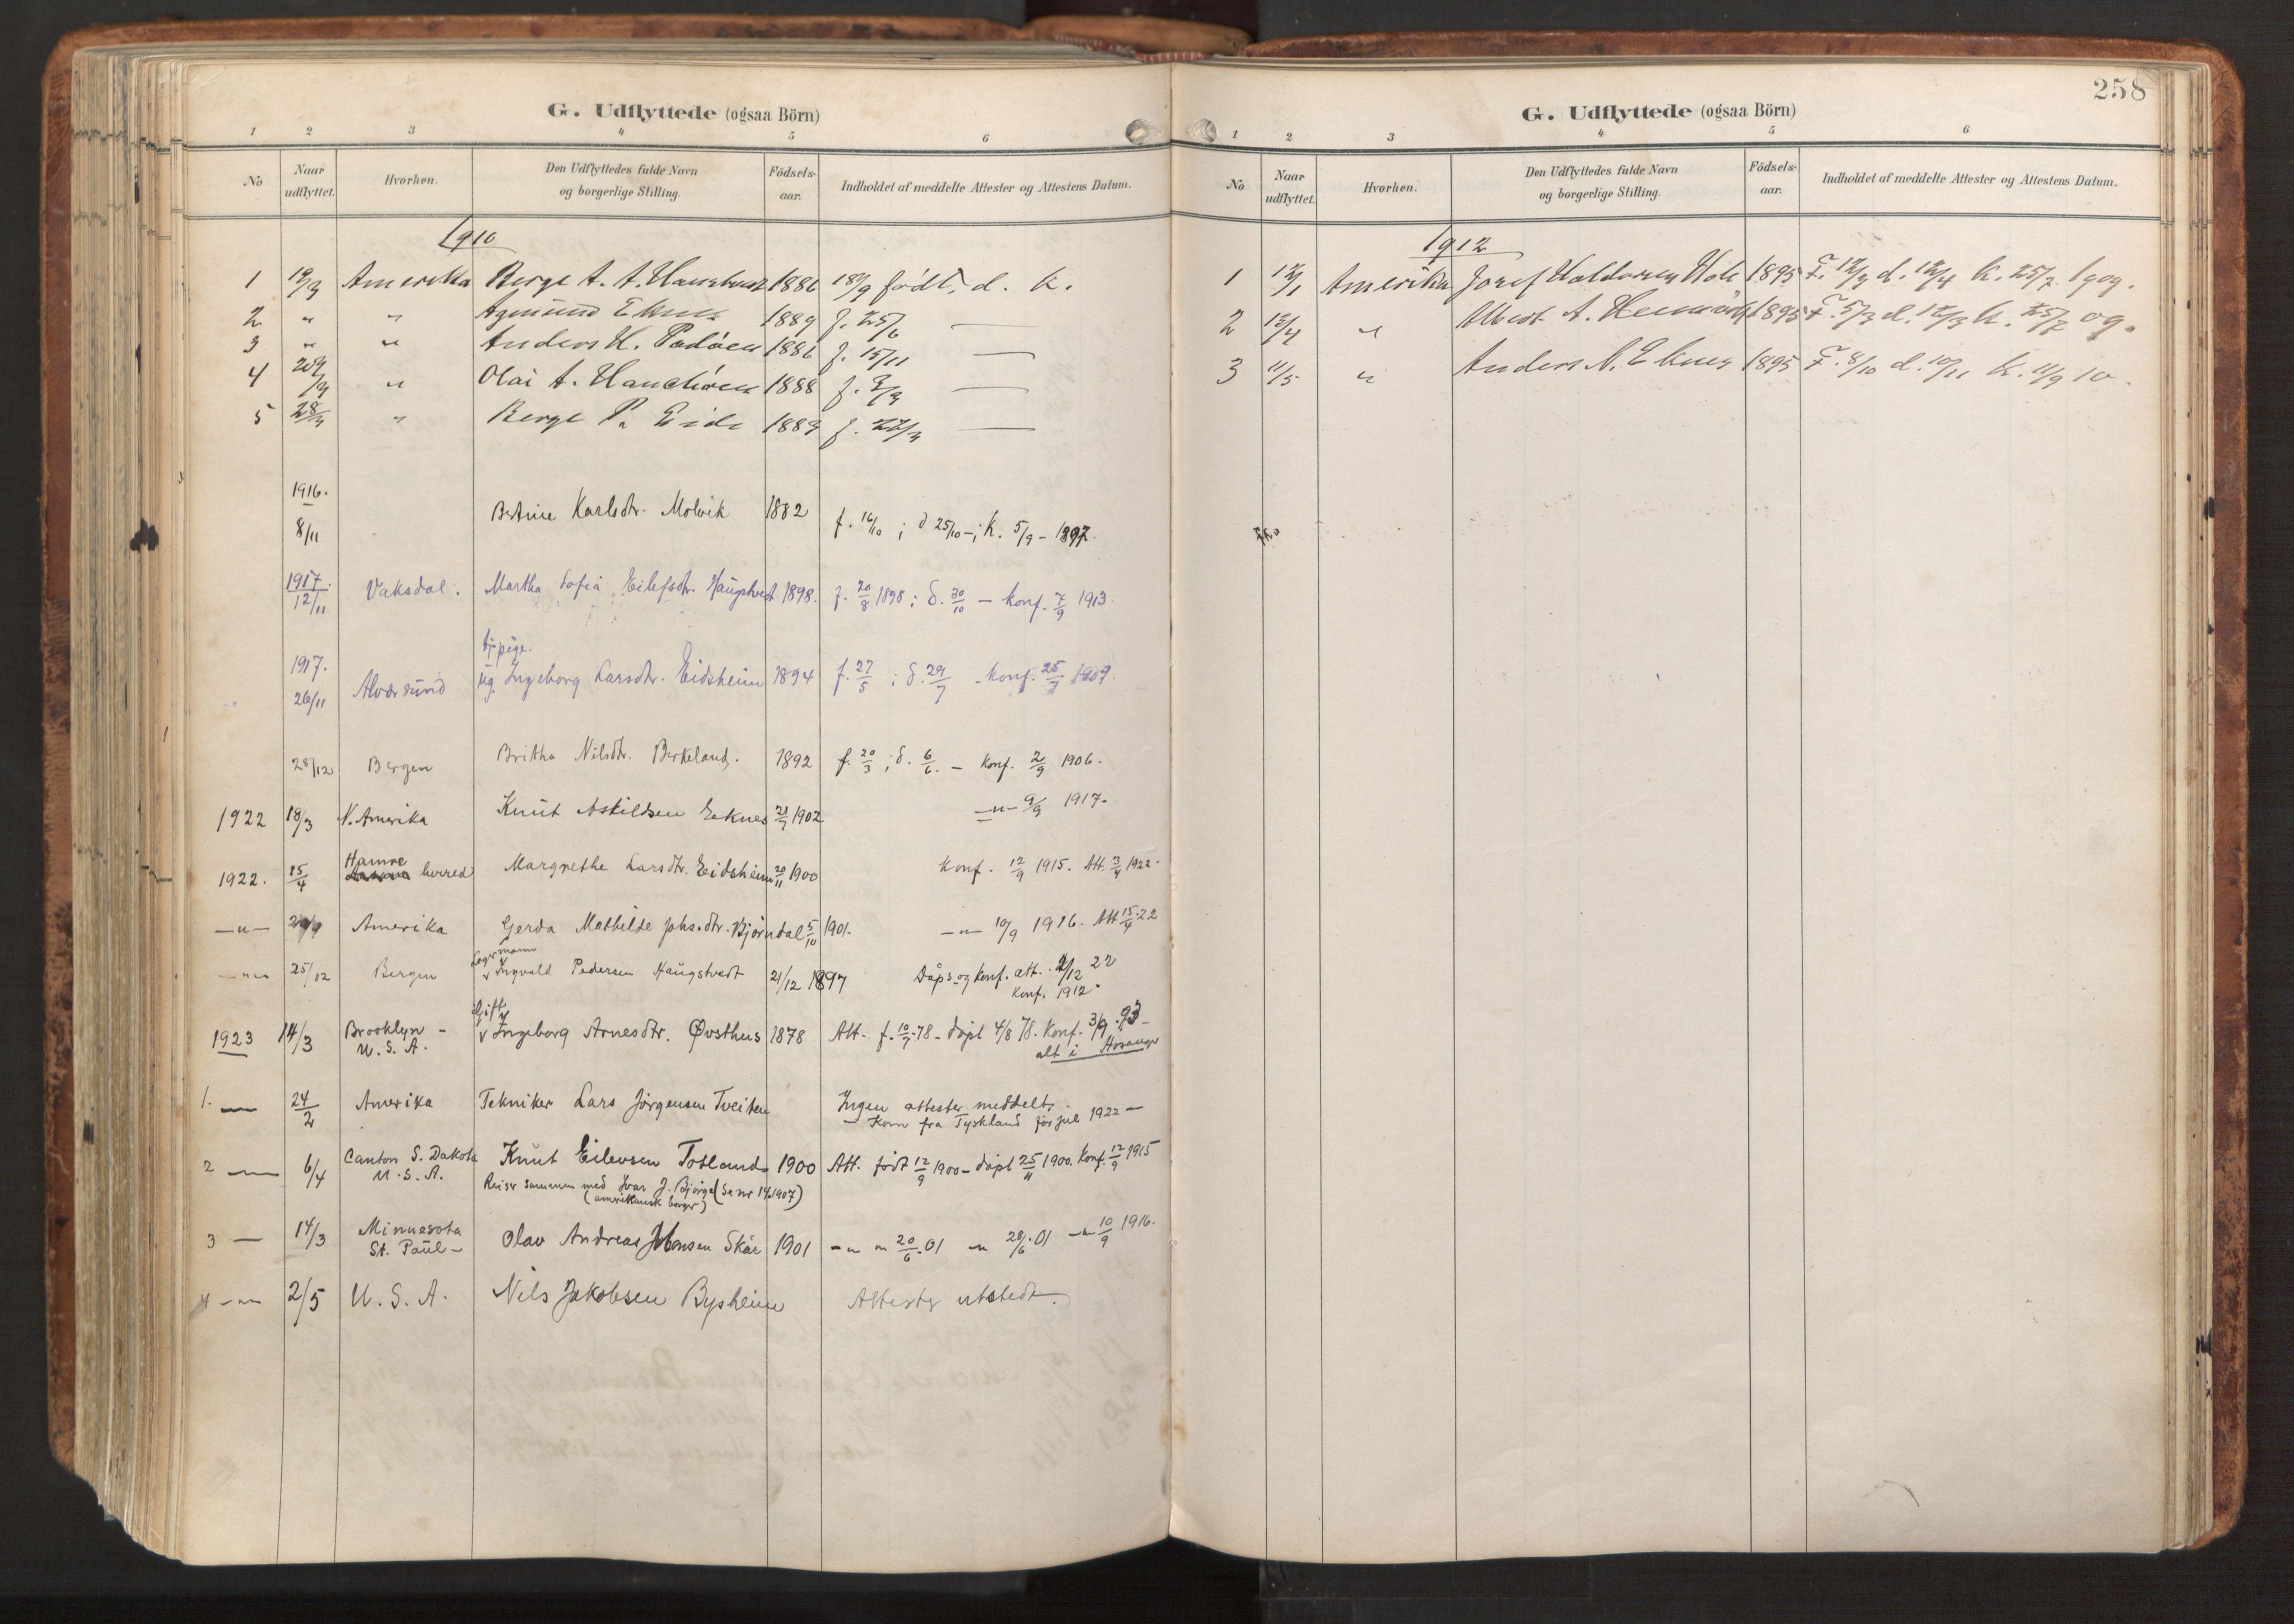 G. Udflyttede (ogsaa Börn)
1 2 3 4 5 6
No
Naar udflyttet.
Hvorhen.
Den Udflyttedes fulde Navn og borgerlige Stilling.
Födselsaar.
Indholdet af meddelte Attester og Attestens Datum.
1910
1 19/3 Amerika Berge A. A. 1886 18/9 født, d. k.
2 " " Agmund 1889 f. 25/6 —
3 " " Anders H. 1886 f. 15/11 —
4 " Olai A. 1888 —
5 28/3 " Berge P. Eide 1889 f. 27/3 —
1916.
8/11 Karlsdtr. Molvik 1882 f. 16/10 ; d 25/10 - ; k. 5/9 - 1897.
1917. 12/11 Vaksdal. Martha Sofia Eilefsdtr. Haugstvedt 1898. f. 20/8 1898 ; d. 30/10 - konf. 7/9 1913.
tj.pige.
1917. 26/11 Alversund ug. Ingeborg Larsdtr. Eidsheim 1894 f. 27/5 ; d. 29/7 - konf. 25/7 1909.
28/12 Bergen Britha Nilsdtr. Birkeland. 1892 f. 20/3 ; d. 6/6. - konf. 2/9 1906.
1922 18/3 N. Amerika Knut Askildsen Eeknes 21/7 1902 -"- 9/9 1917.
1922. 15/4 Hamre herred Margrethe Larsdtr. Eidsheim 20/11 1900 Konf. 12/9 1915. Att. 3/4 1922.
-"- Amerika Gerda Mathilde Johs.dtr. Bjørndal 5/10 1901. -"- 10/9 1916. Att 15/4.22
Lagermann
-"- 25/12 Bergen v Ingvald Pedersen Haugstvedt 21/12 1897 Dåps- og konf. att. 2/12 22
konf. 1912.
Gift
1923 14/3 Brooklyn - U. S. A. v Ingeborg Arnesdtr. Øvsthus 1878 Att. f. 10/7.78 - døpt 4/8 78. Konf. 3/9.93 -
alt i Hosanger
1. — 24/2 Amerika Tekniker Lars Jørgensen Tveiten Ingen attester meddelt.
Kom fra Tyskland før jul 1922 -
2 — 6/4 Canton S. Dakota U. S. A. Knut Eilevsen Totland 1900 Att. født 12/9 1900 - døpt 25/11 1900. Konf. 12/9 1915
Reiser sammen med Ivar J. Bjørge (se nr 14, 1907)
(amerikansk borger)
3 — 14/3 Minnesota St. Paul - Olav Andreas Johnsen Skår 1901 -"- " 20/6.01 " 28/6.01 -"- 10/9 1916.
4 -"- 2/5 U. S. A. Nils Jakobsen Bysheim Attester utstedt.
258
G. Udflyttede (ogsaa Börn)
1 2 3 4 5 6
No
Naar udflyttet.
Hvorhen.
Den Udflyttedes fulde Navn og borgerlige Stilling.
Födselsaar.
Indholdet af meddelte Attester og Attestens Datum.
1912
1 12/1 Amerika Josef Haldorsen 1895 F. 12/3 d. 12/4 k. 25/7 1909.
2 12/4 " Albert A. 1895 F. 5/3 d. 12/3 k. 25/7 09.
3 11/5 " Anders N. Eknes 1895 F. 8/10 d. 10/11 k. 11/9 10.